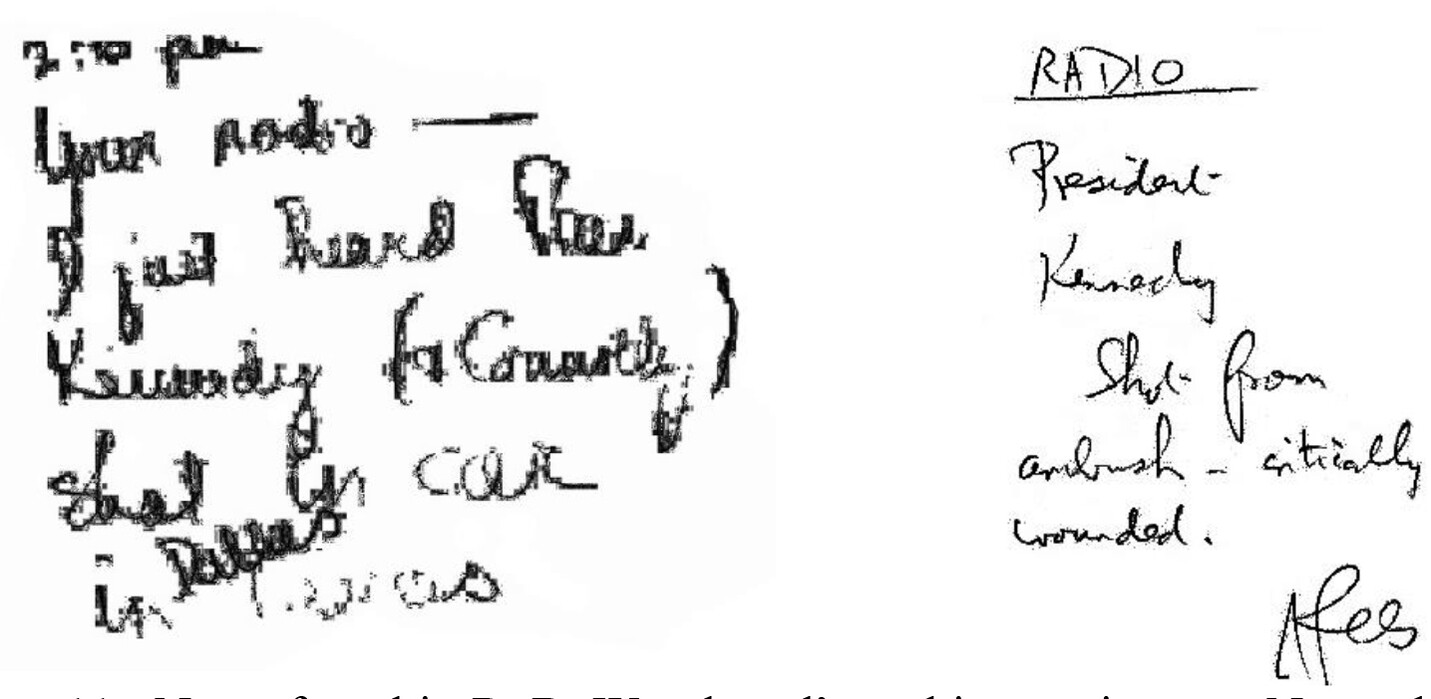 2:10 pm
Your radio —
I just heard Pres
Kennedy (& Connolly)
shot in car
in Dallas
in Texas
RADIO
President
Kennedy
Shot from
ambush - critically
wounded.